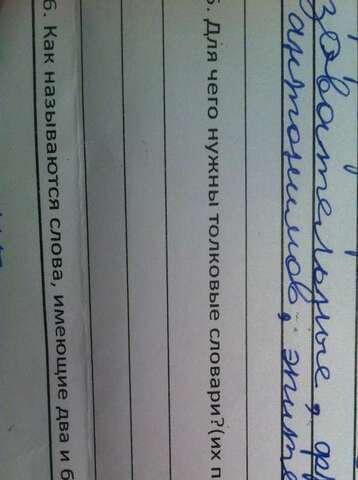 зовательные, фр
антонимов, эпите
5. Для чего нужны толковые словари?(их п
6. Как называются слова, имеющие два и б